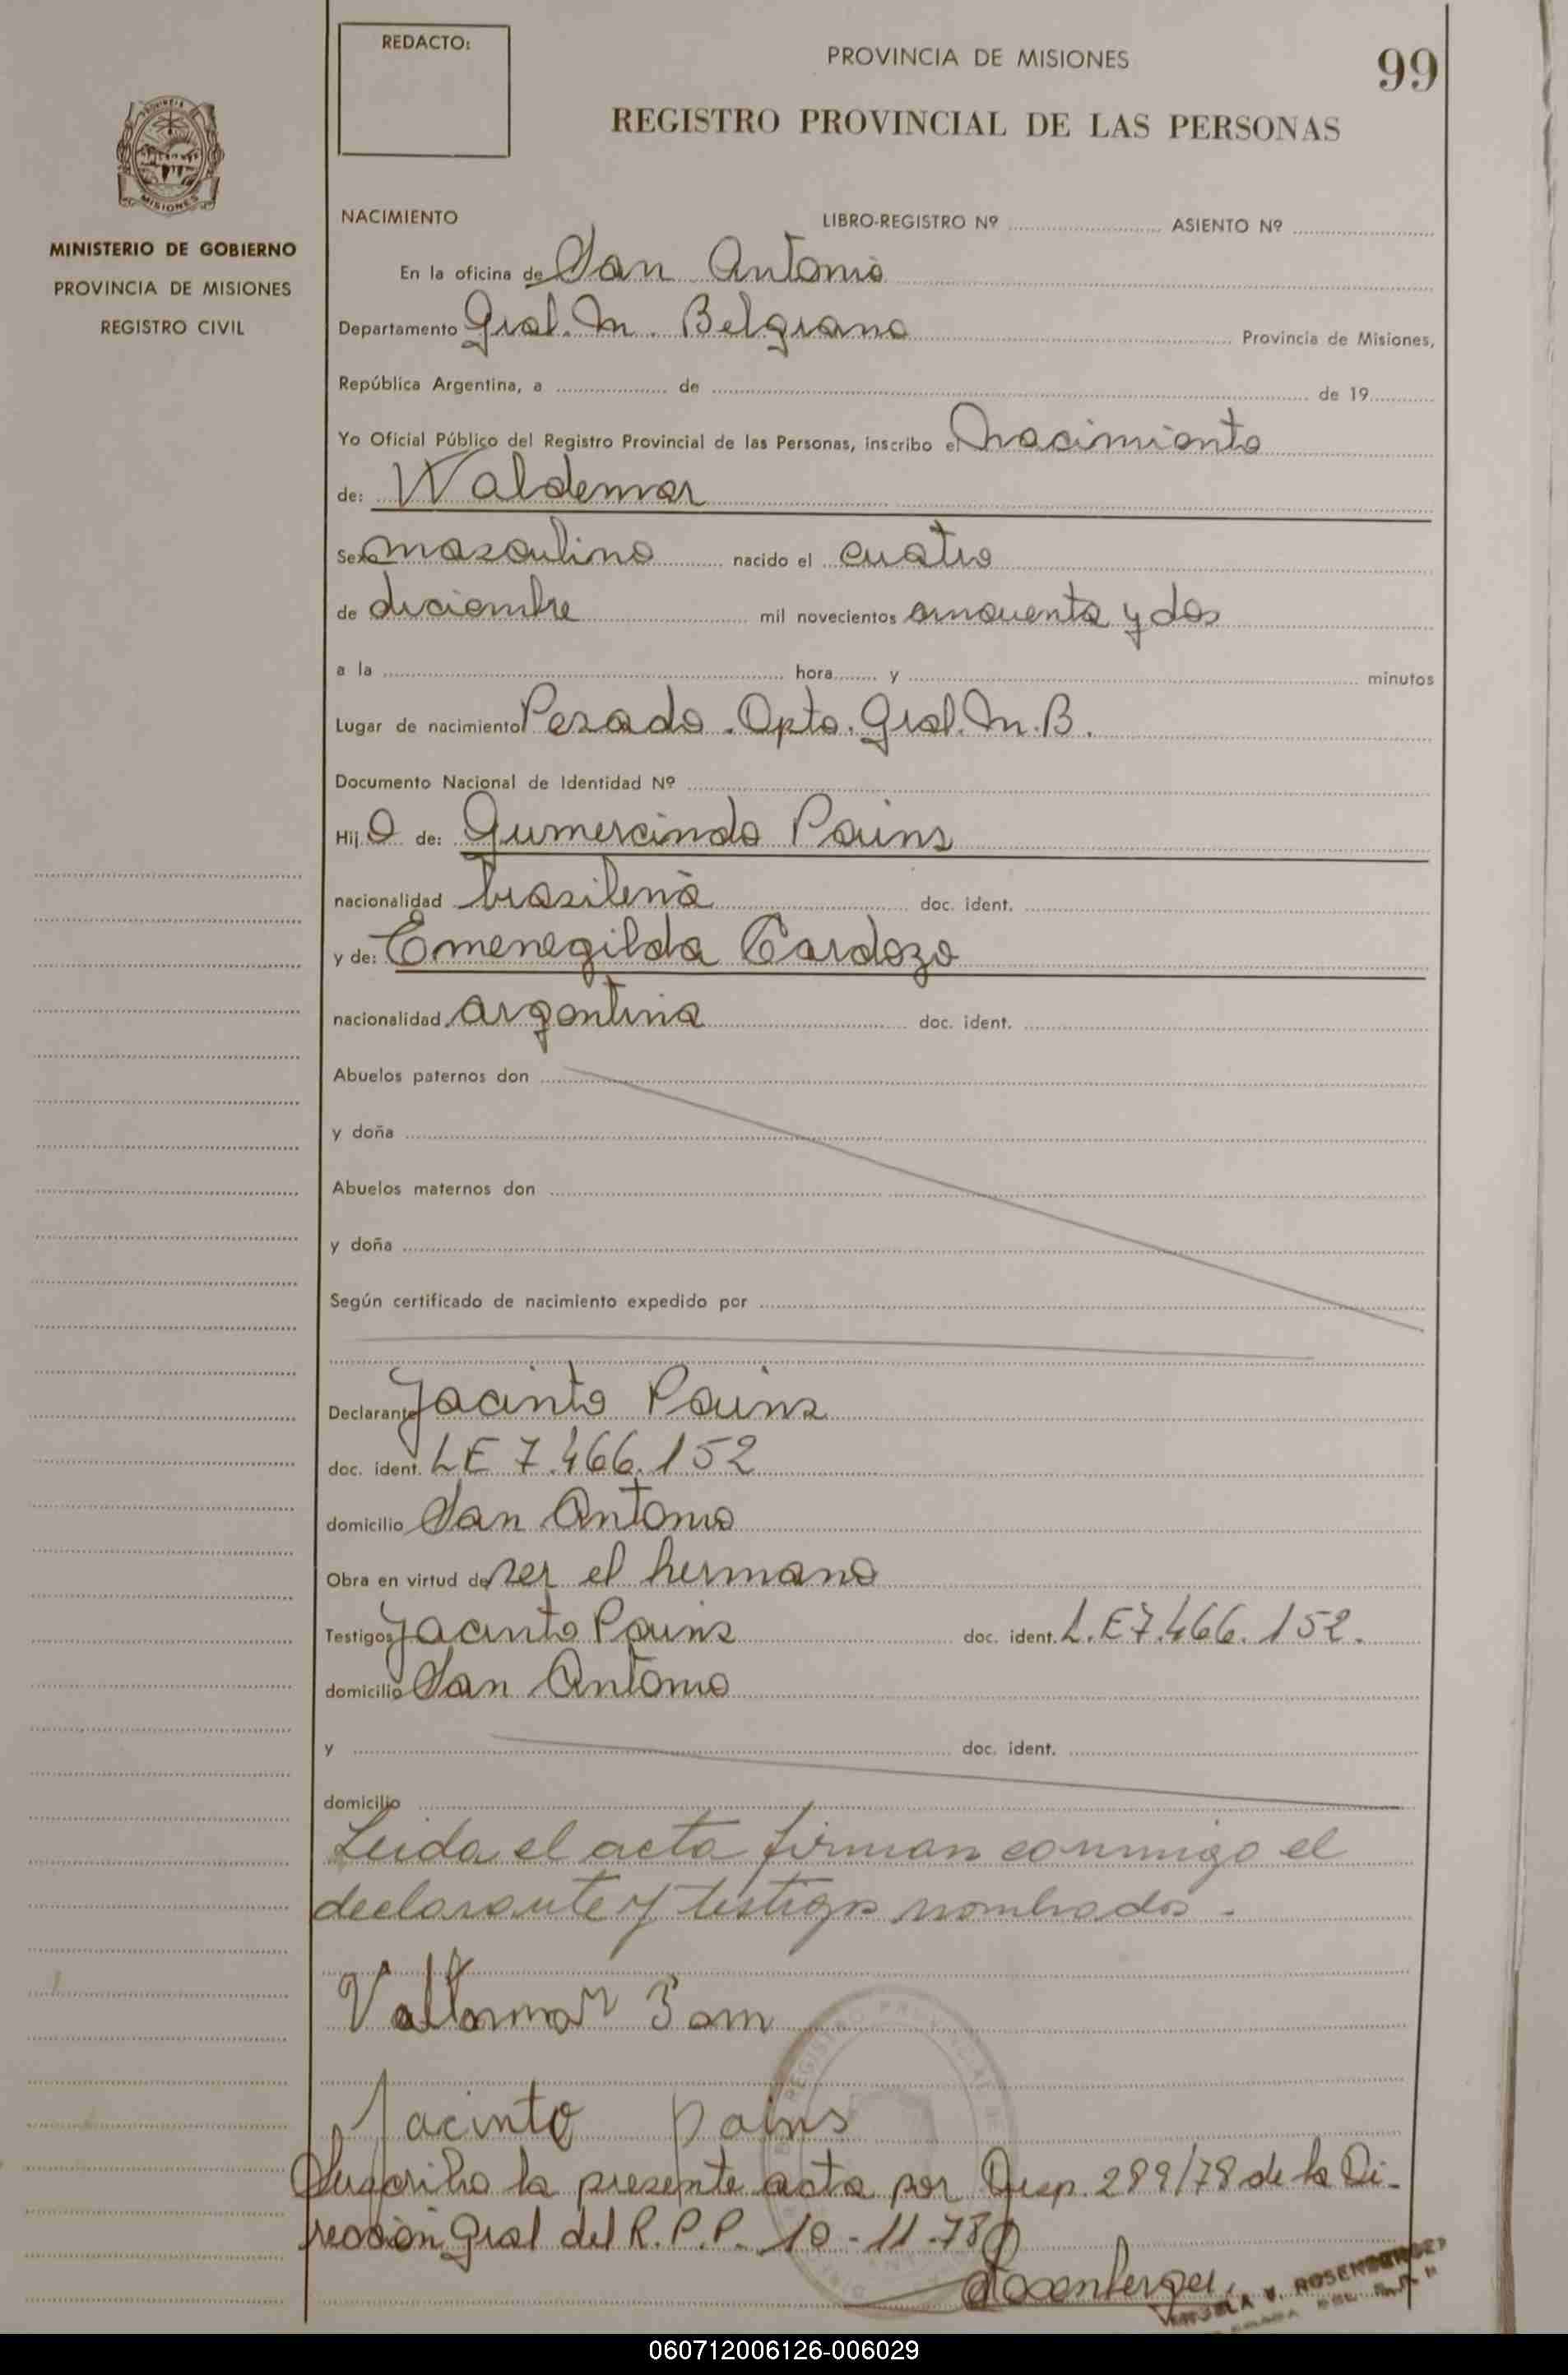 REDACTO:
PROVINCIA DE MISIONES
99
REGISTRO PROVINCIAL DE LAS PERSONAS
MISIONES
MINISTERIO DE GOBIERNO
PROVINCIA DE MISIONES
REGISTRO CIVIL
NACIMIENTO LIBRO-REGISTRO Nº ASIENTO Nº
En la oficina de San Antonio
Departamento Gral. M. Belgrano Provincia de Misiones,
República Argentina, a de de 19
Yo Oficial Público del Registro Provincial de las Personas, inscribo el nacimiento
de: Waldemar
Sexo masculino nacido el cuatro
de diciembre mil novecientos cincuenta y dos
a la hora y minutos
Lugar de nacimiento Pesado. Dpto. Gral. M. B.
Documento Nacional de Identidad Nº
Hij o de: Gumercindo Pains
nacionalidad brasilena doc. ident.
y de: Emenegilda Cardozo
nacionalidad argentina doc. ident.
Abuelos paternos don
y doña
Abuelos maternos don
y doña
Según certificado de nacimiento expedido por
Declarante Jacinto Pains
doc. ident. LE 7.466.152
domicilio San Antonio
Obra en virtud de ser el hermano
Testigos Jacinto Pains doc. ident. L.E 7.466.152.
domicilio San Antonio
y doc. ident.
domicilio
Leida el acta firman conmigo el
declarante y testigos nombrados.
Jacinto pains
Suscribo la presente acta por Disp. 289/78 de la Di-
rección Gral del R.P.P. 10-11-78
Rosenberger
V. ROSENBERGER
060712006126-006029